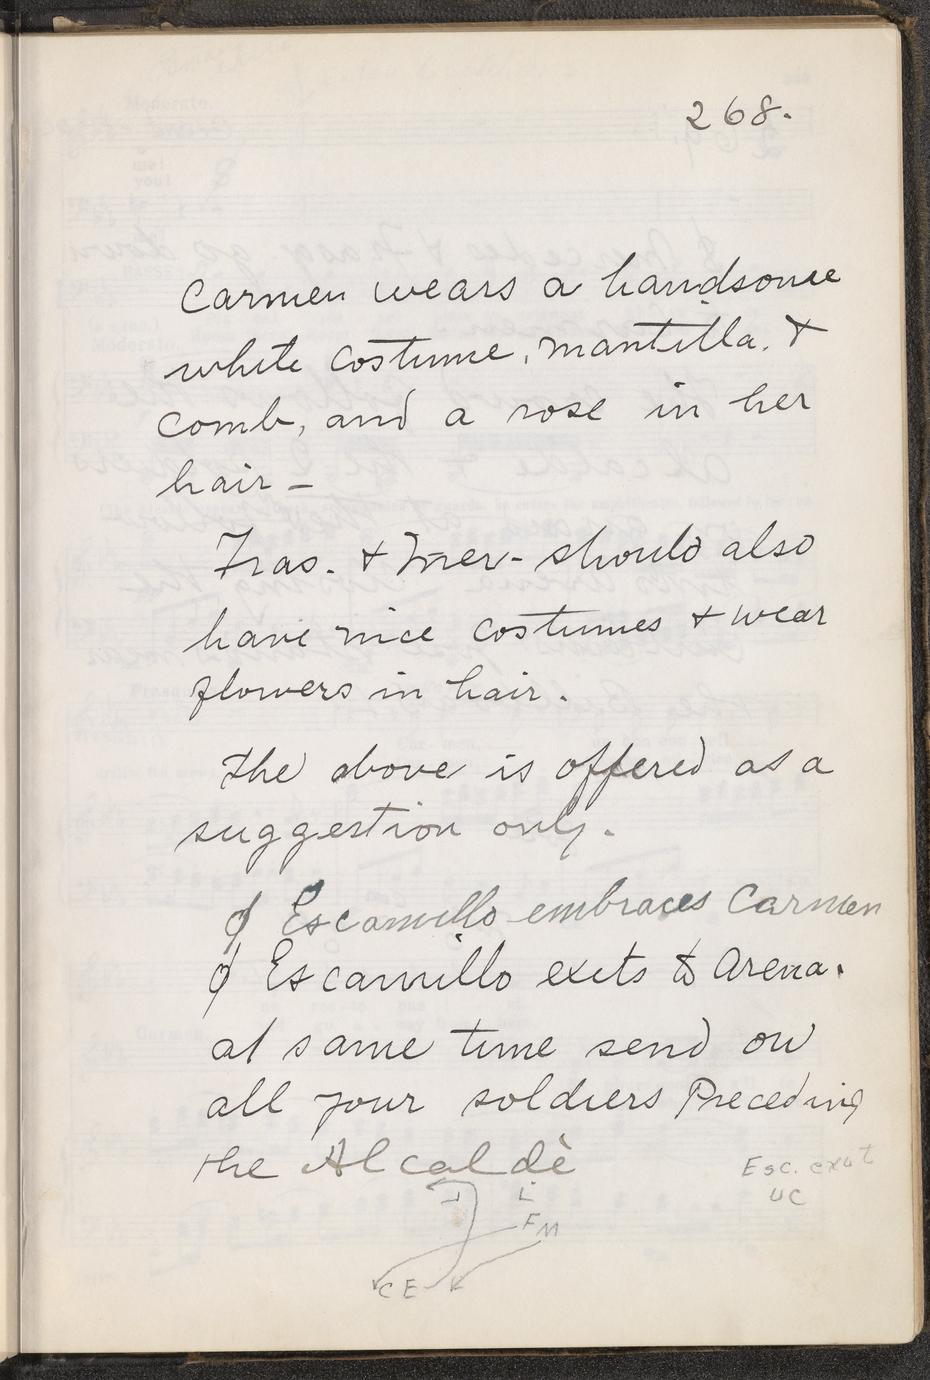 268.
Carmen wears a handsome
white costume, mantilla, &
comb, and a rose in her
hair –
Fras. & Mer- should also
have nice costumes & wear
flowers in hair.
The above is offered as a
suggestion only.
Escamillo embraces Carmen
Escamillo exits to Arena.
at same time send on
all your soldiers Preceding
the Alcaldè
Esc. exit
UC
L
FM
C E